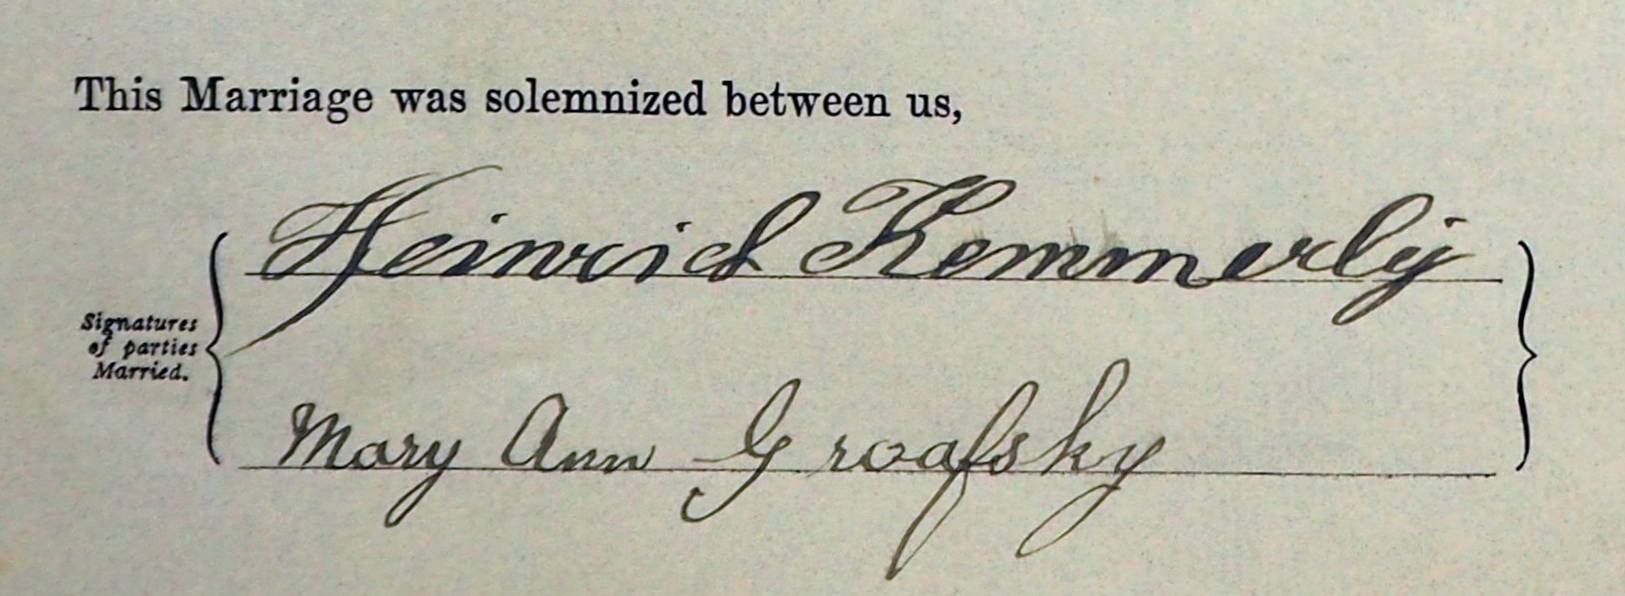 This Marriage was solemnized between us,
Heinrich Kemmerly
Signatures
of parties
Married.
Mary Ann Groafsky